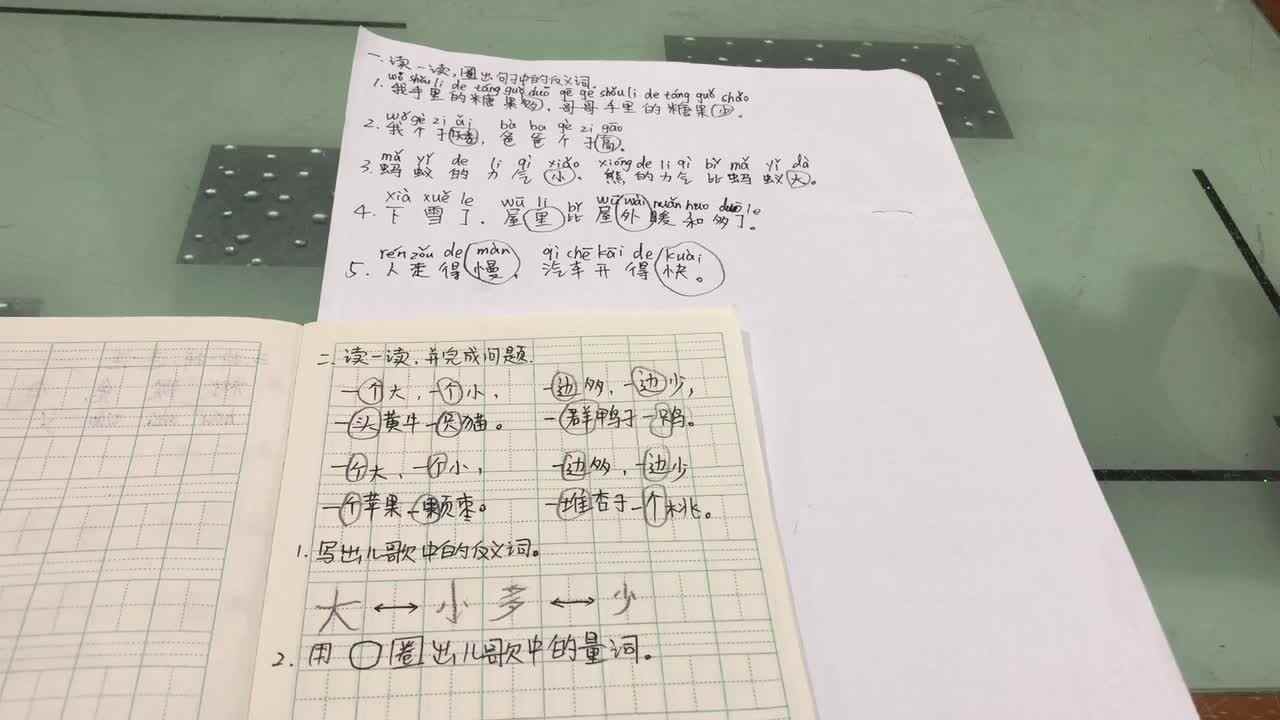 一.读一读,圈出句子中的反义词.
wǒ shǒu li de táng guǒ duō gē ge shǒu li de táng guǒ shǎo
1. 我手里的糖果多, 哥哥手里的糖果少。
wǒ gè zi ǎi bà ba gè zi gāo
2. 我个子矮, 爸爸个子高。
mǎ yǐ de li qi xiǎo xióng de li qì bǐ mǎ yǐ dà
3. 蚂蚁的力气小, 熊的力气比蚂蚁大。
xià xuě le wū li bǐ wū wài nuǎn huo duō le
4. 下雪了, 屋里比屋外暖和多了。
rén zǒu de màn qì chē kāi de kuài
5. 人走得慢, 汽车开得快。
二.读一读,并完成问题.
一个大,一个小, 一边多,一边少,
一头黄牛一只猫。 一群鸭子一只鸟。
一个大、一个小, 一边多,一边少
一个苹果一颗枣。 一堆杏子一个桃。
1.写出儿歌中的反义词。
大 ↔ 小 多 ↔ 少
2.用 ○ 圈出儿歌中的量词。